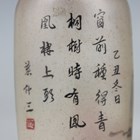 乙丑冬日
窗前種得青
桐樹時有鳳
凰棲上
葉仲三